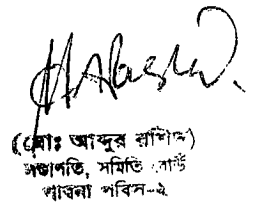 (মোঃ আব্দুর রশিদ)
সভাপতি, সমিতি বোর্ড
পাবনা পবিস-২